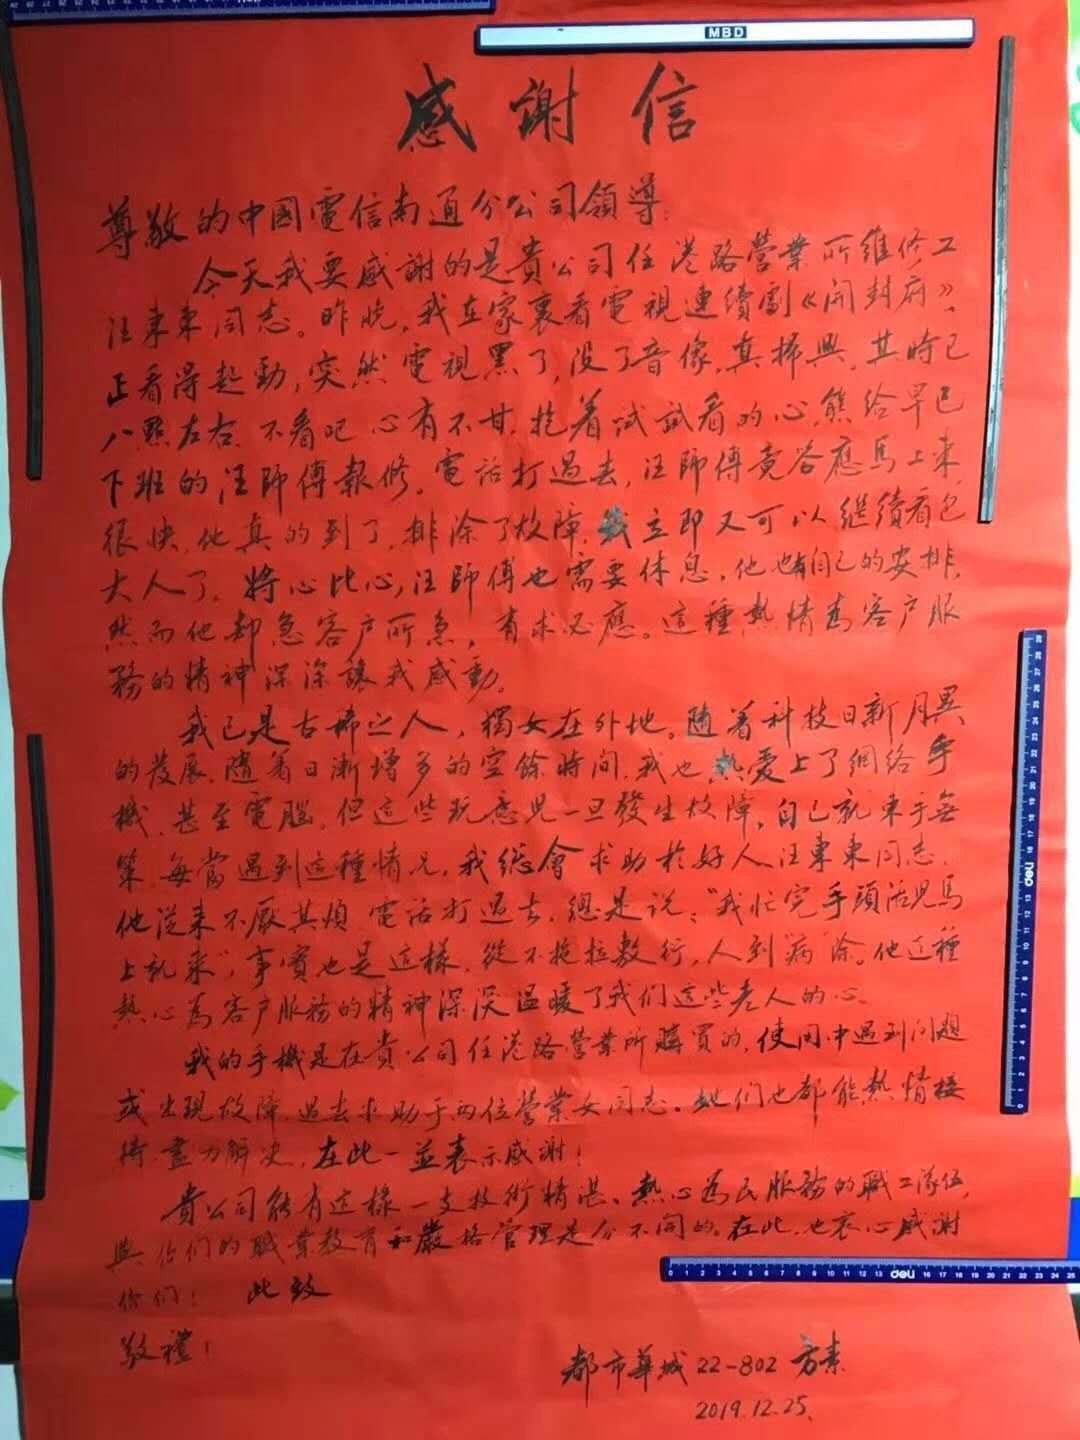 MBD
感謝信
尊敬的中國電信南通分公司領導：
今天我要感謝的是貴公司任港路營業所維修工
汪東東同志。昨晚，我在家裏看電視連續劇《開封府》、
正看得起勁，突然電視黑了，没了音像，真掃興，其時已
八點左右，不看吧心有不甘，抱着试試看的心態给早已
下班的汪師傅報修。電话打過去，汪師傅竟答應馬上來，
很快，他真的到了，排除了故障，我立即又可以继續看包
大人了。將心比心，汪師傅也需要休息，他也有自己的安排，
然而他却急客户所急，有求必應。這種熱情為客户服
務的精神深深讓我感動。
我已是古稀之人，獨女在外地。随着科技日新月異
的發展，随着日漸增多的空餘時间，我也熱爱上了網络手
機，甚至電腦，但這些玩意児一旦發生故障，自己就束手無
策，每當遇到這種情况，我總會求助於好人汪東東同志，
他從来不厭其煩，電话打過去，總是说："我忙完手頭活児馬
上就来"，事實也是這樣，從不拖拉敷衍，人到"病"除。他這種
熱心為客户服務的精神深深温暖了我们這些老人的心。
我的手機是在貴公司任港路營業所購買的，使用中遇到问題
或出現故障，過去求助于两位營業女同志。她们也都能熱情接
待，盡力解决，在此一並表示感謝！
貴公司能有這樣一支技術精湛、熱心為民服務的職工隊伍，
與你们的職業教育和嚴格管理是分不開的，在此，也衷心感謝
你们！ 此致
敬禮！
都市華城 22-802 方素
2019.12.25.
deli
deli